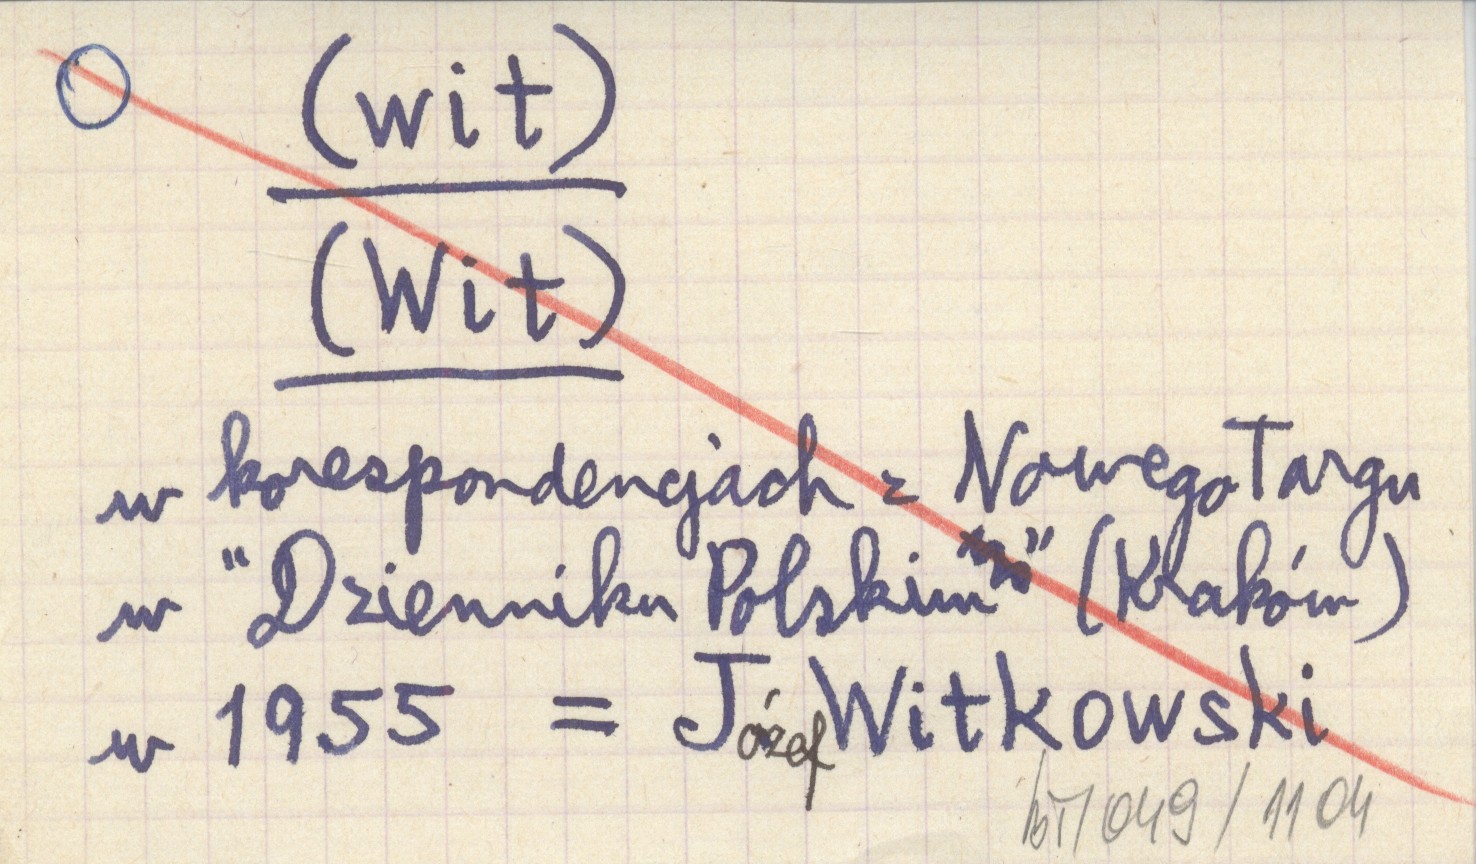 (wit)
(Wit)
w korespondencjach z Nowego Targu
w "Dzienniku Polskim" (Kraków)
w 1955 = Józef Witkowski
/049/1104